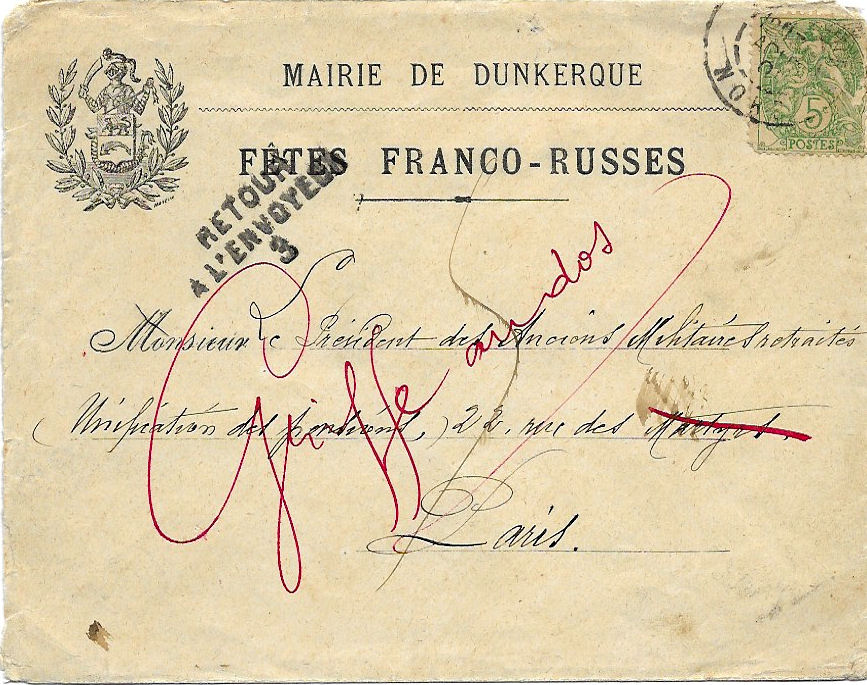 MAIRIE DE DUNKERQUE
FÊTES FRANCO-RUSSES
5c
POSTES
RETOUR
A L'ENVOYEUR
3
Griffe au dos
Monsieur le Président des Anciens Militaires retraités
(Unification des pensions,) 22, rue des Martyrs.
Paris.